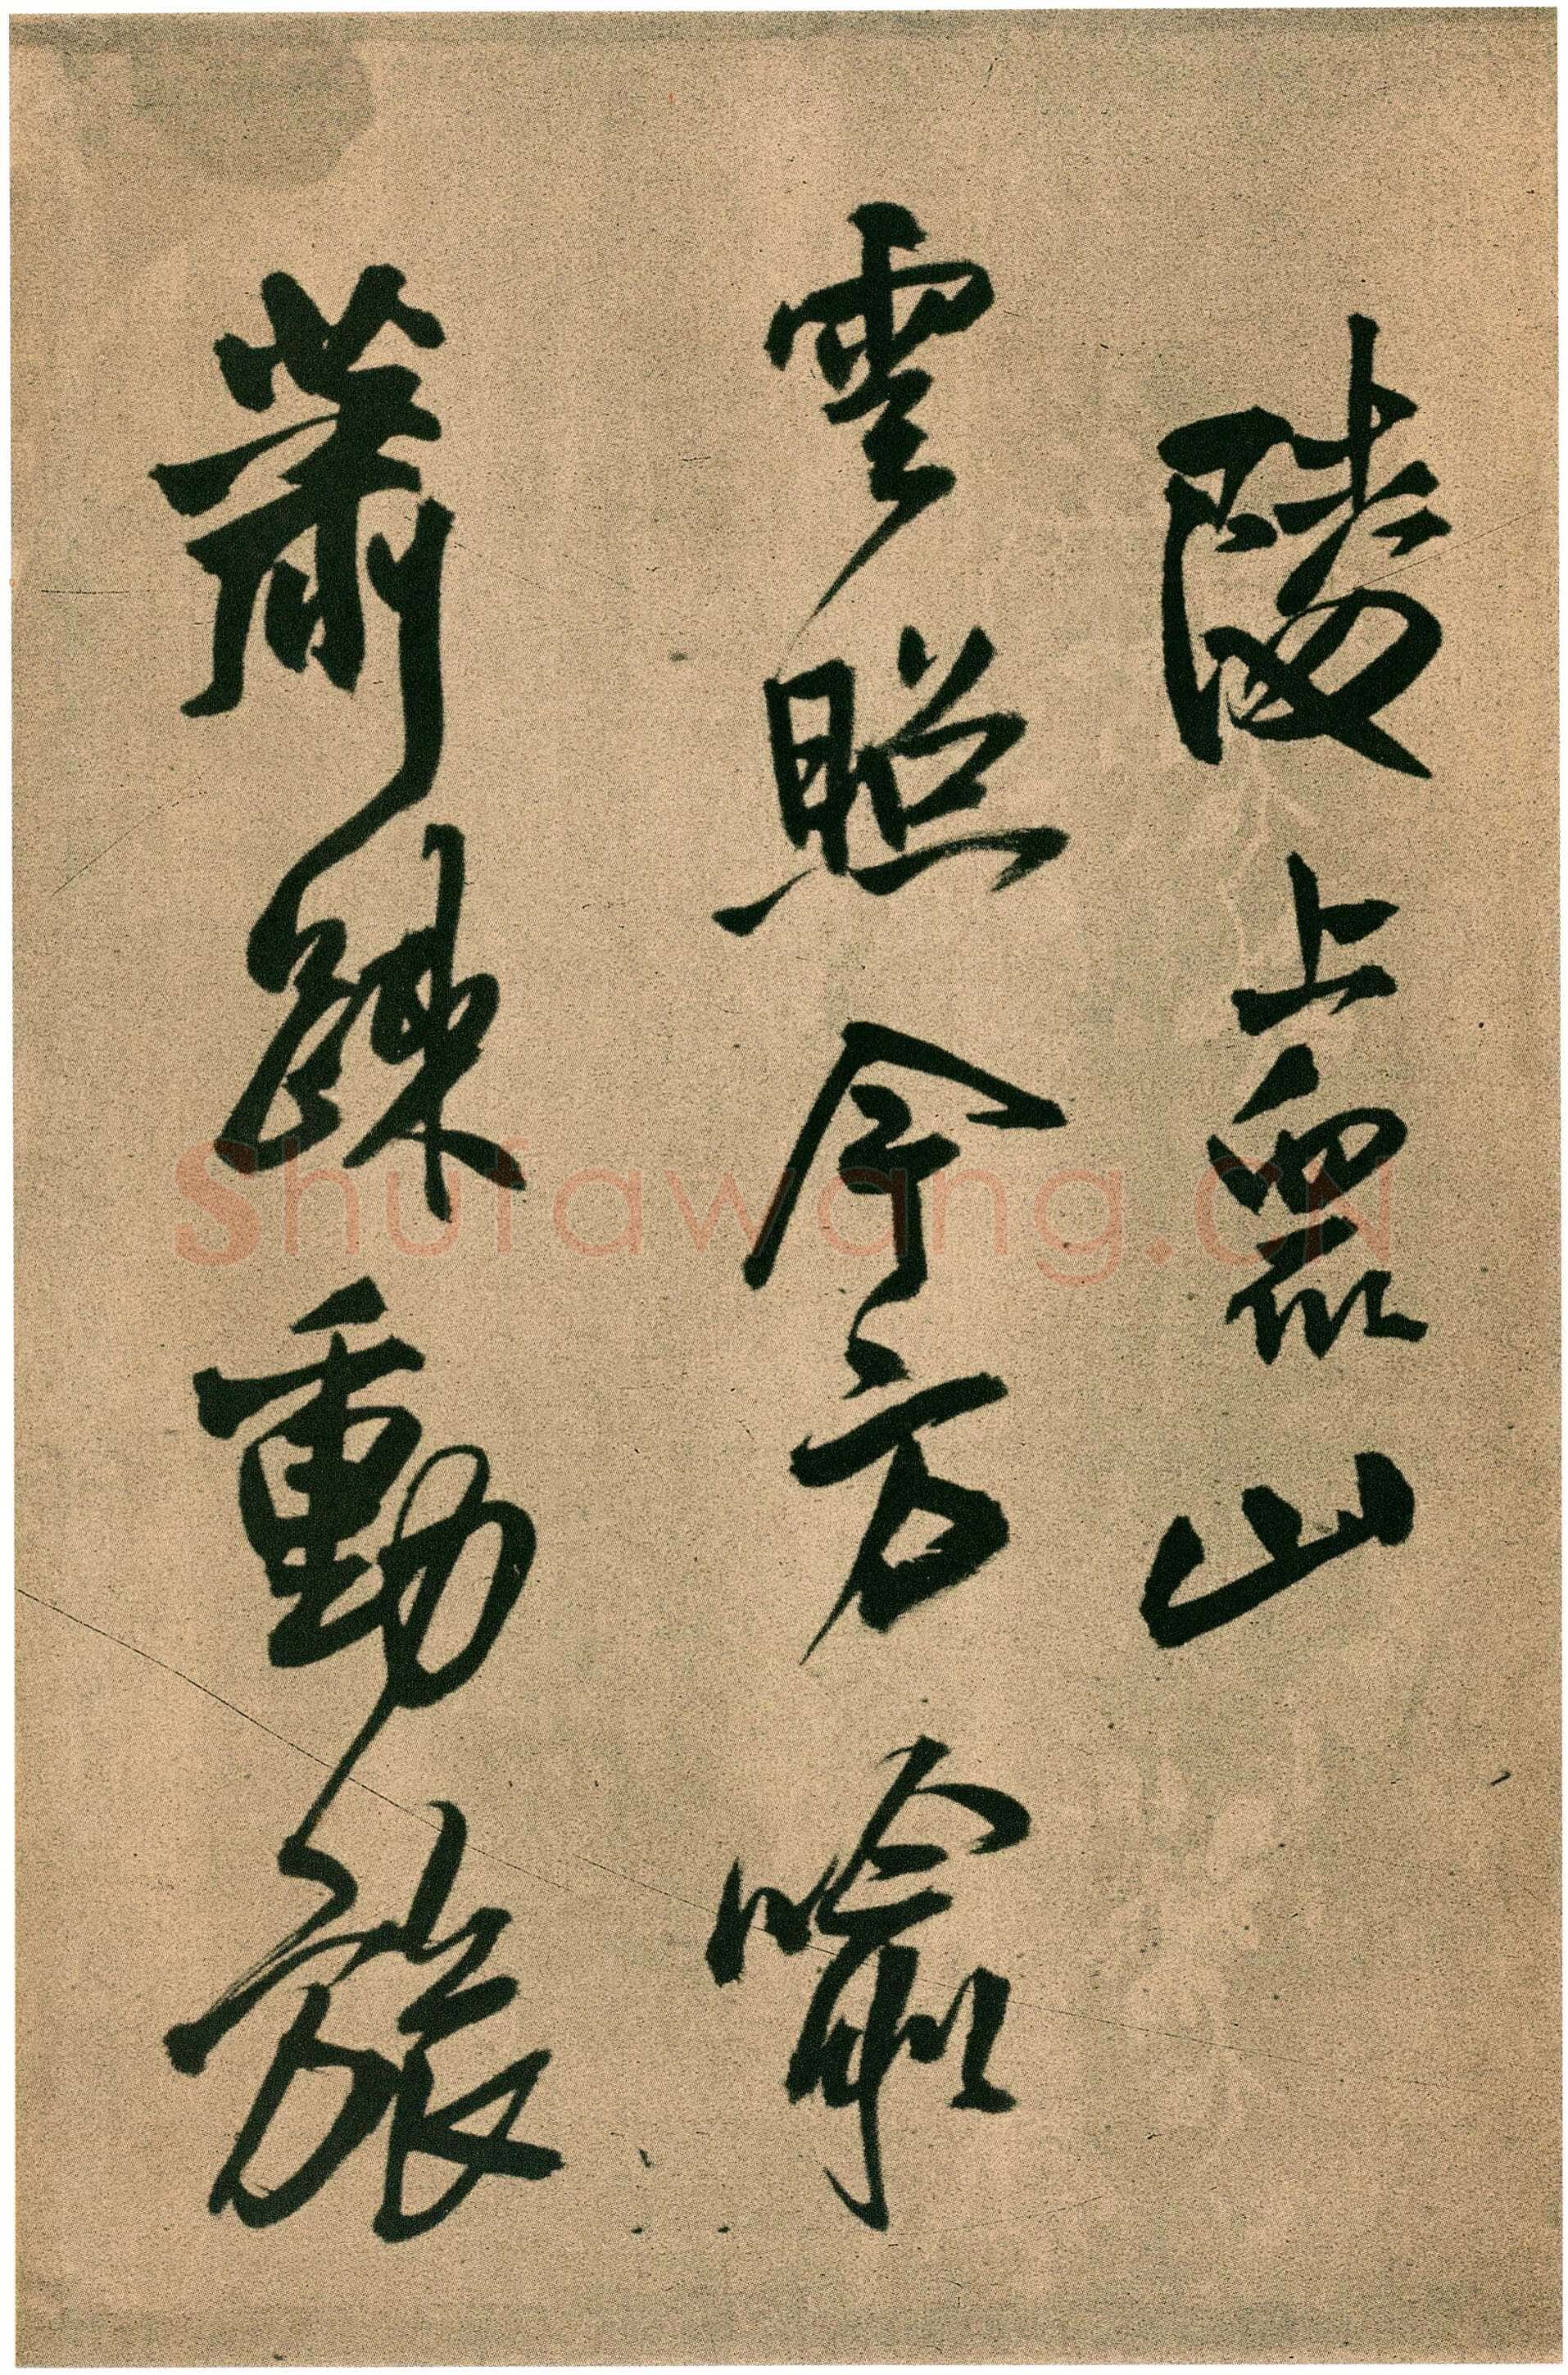 陵上衆山
雲照今方
蕭疎動旅
Shufawang.CN